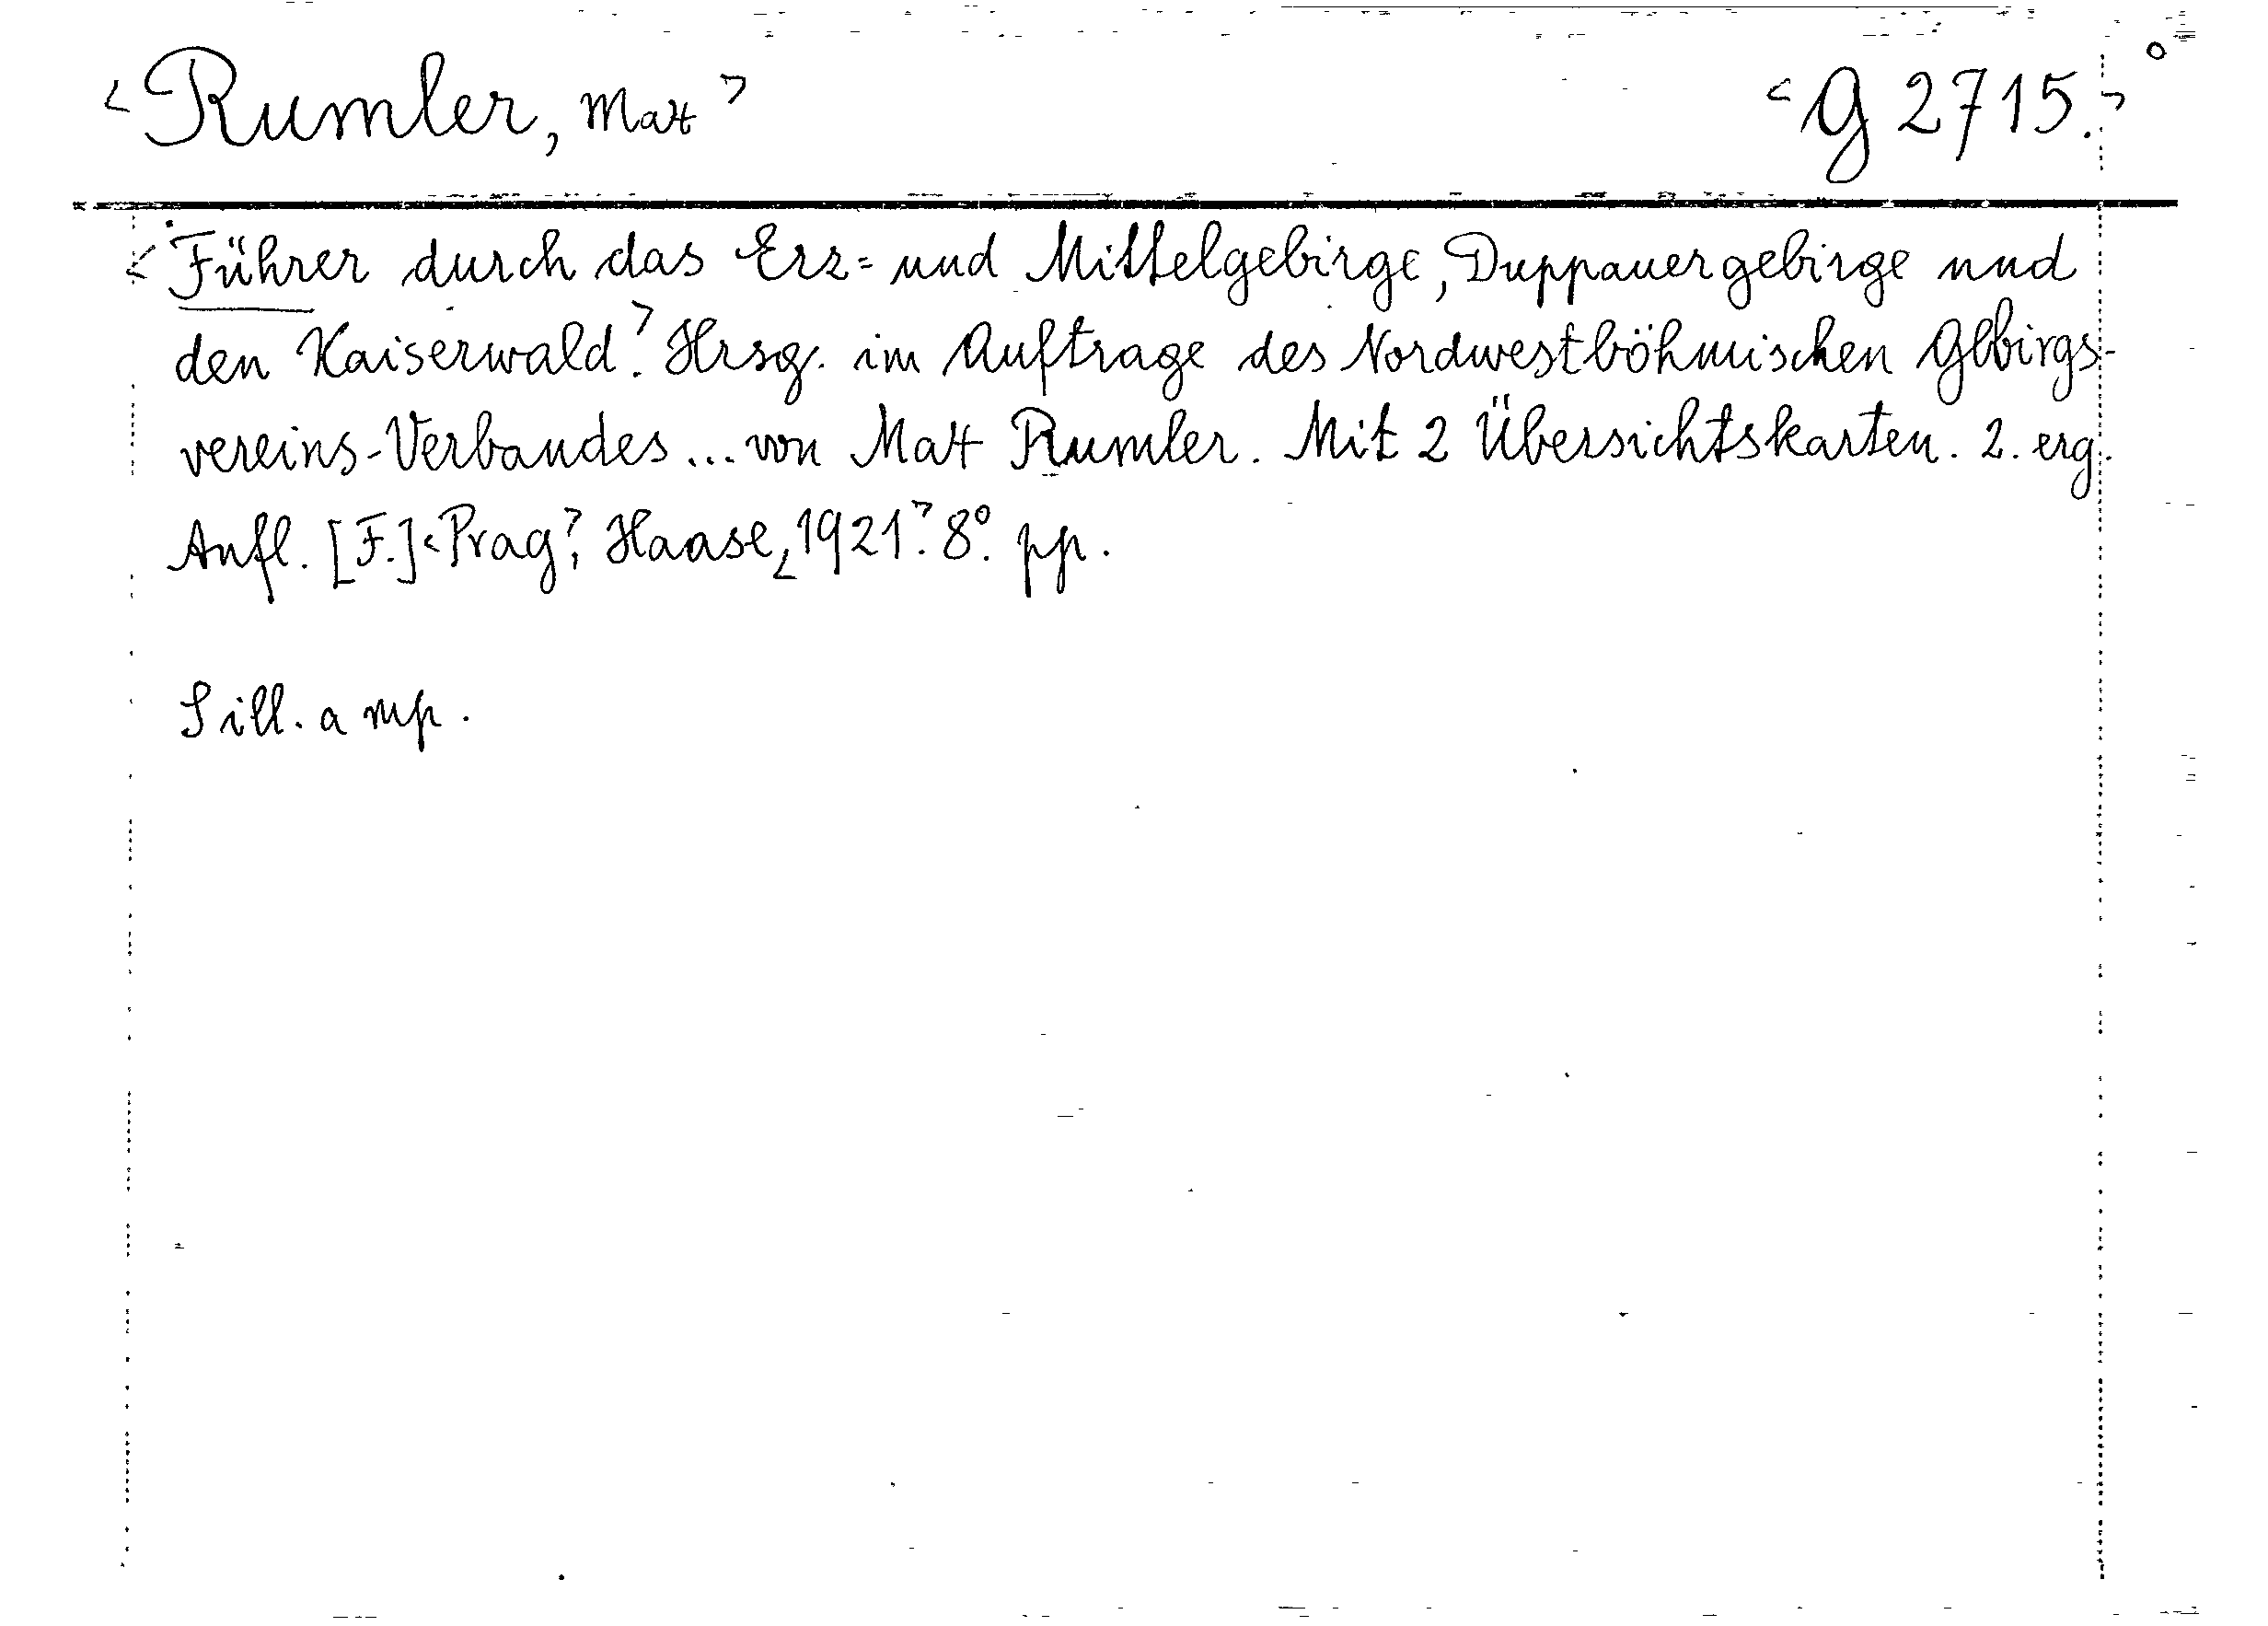 <Rumler, Max>
<G 2715.>
<Führer durch das Erz= und Mittelgebirge, Duppauergebirge und
den Kaiserwald>. Hrsg. im Auftrage des Nordwestböhmischen Gebirgs-
vereins-Verbandes ... von Max Rumler. Mit 2 Übersichtskarten. 2. erg.
Aufl. [F.] <Prag>, Haase, <1921>. 8°. pp.
S ill. a mp.